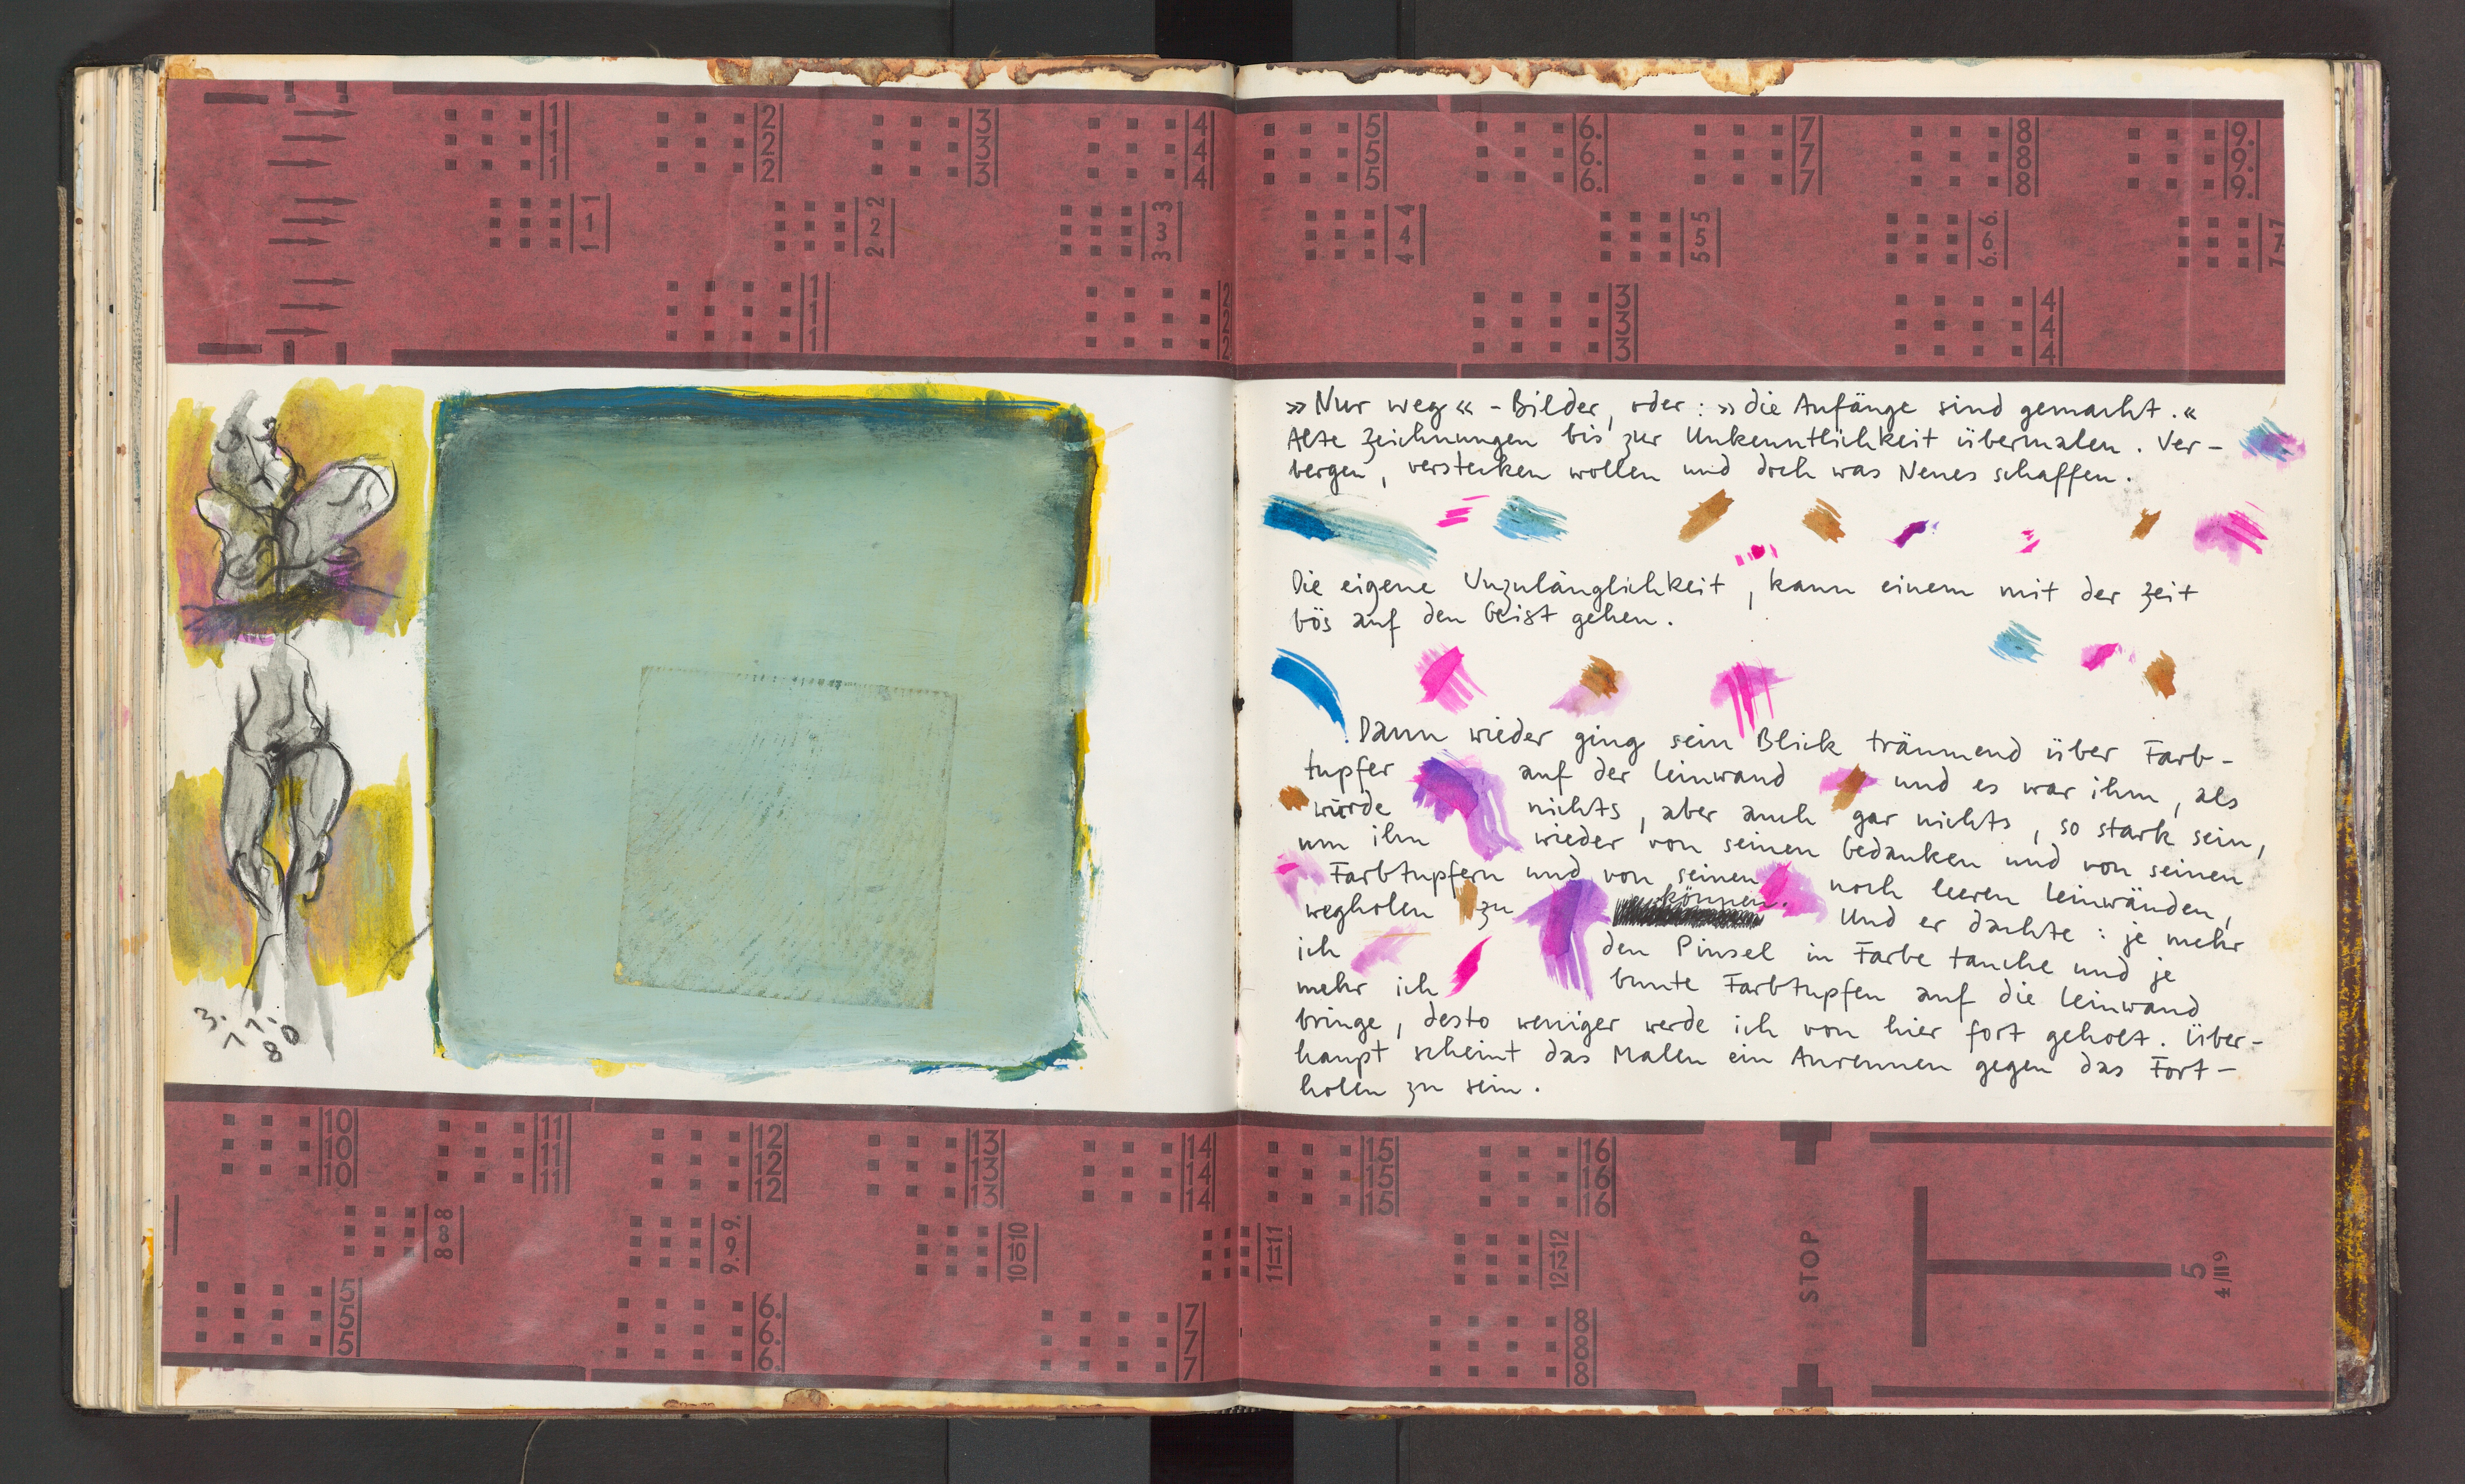 1 2 3 4 5 6. 7 8 9.
1 2 3 4 5 6. 7 8 9.
1 2 3 4 5 6. 7 8 9.
1 2 3 4 5 6. 7
1 2 3 4 5 6. 7
1 2 3 4 5 6. 7
1 2 3 4
1 2 3 4
1 2 3 4
3. 11. 80
»Nur weg« - Bilder, oder: »die Anfänge sind gemacht.«
Alte Zeichnungen bis zur Unkenntlichkeit übermalen. Ver-
bergen, verstecken wollen und doch was Neues schaffen.
Die eigene Unzulänglichkeit, kann einem mit der Zeit
bös auf den Geist gehen.
Dann wieder ging sein Blick träumend über Farb-
tupfer auf der Leinwand und es war ihm, als
würde nichts, aber auch gar nichts, so stark sein,
um ihn wieder von seinen Gedanken und von seinen
Farbtupfern und von seinen noch leeren Leinwänden,
wegholen zu können. Und er dachte: je mehr
ich den Pinsel in Farbe tauche und je
mehr ich bunte Farbtupfen auf die Leinwand
bringe, desto weniger werde ich von hier fort geholt. Über-
haupt scheint das Malen ein Anrennen gegen das Fort-
holen zu sein.
10 11 12 13 14 15 16
10 11 12 13 14 15 16
10 11 12 13 14 15 16
8 9. 10 11 12
8 9. 10 11 12
8 9. 10 11 12
5 6. 7 8
5 6. 7 8
5 6. 7 8
STOP
5
4/II9